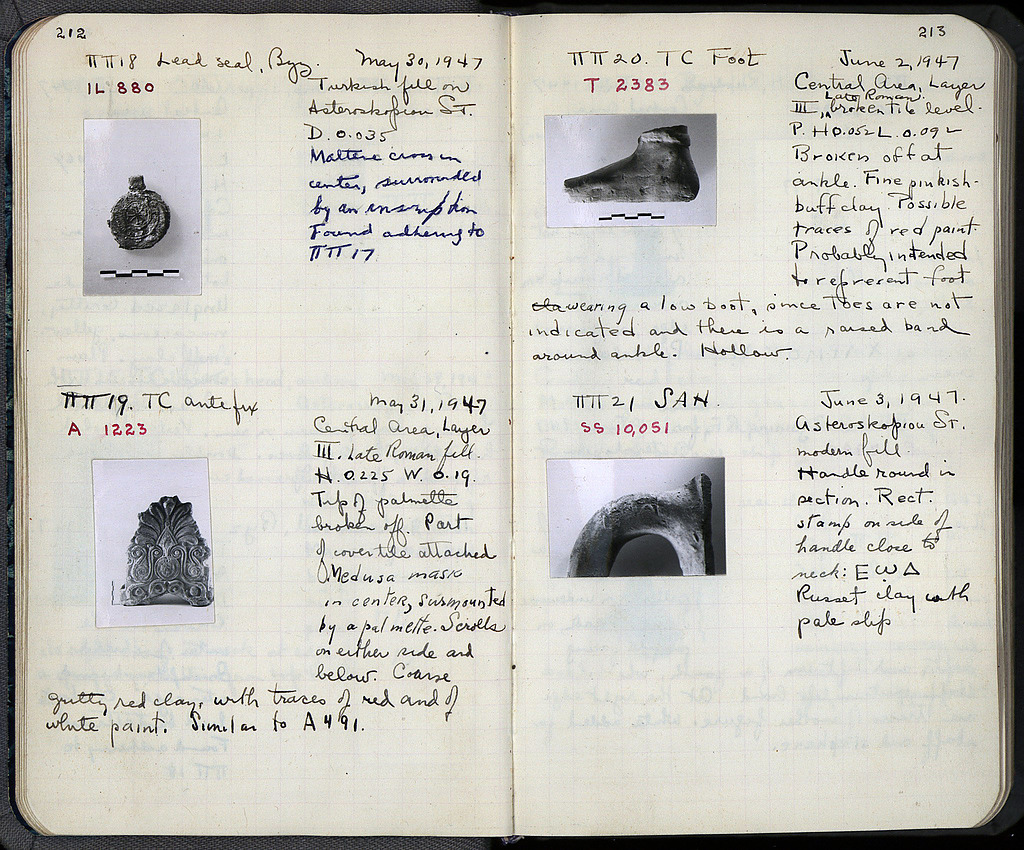 212
ΠΠ18 Lead seal, Byz. May 30, 1947
IL 880
Turkish fill on
Asteroskopiou St.
D. 0.035
Maltese cross in
center, surrounded
by an inscription
Found adhering to
ΠΠ 17
ΠΠ19. TC antefix May 31, 1947
A 1223
Central Area, Layer
III. Late Roman fill.
H. 0.225 W. 0.19.
Tip of palmette
broken off. Part
of cover tile attached
Medusa mask
in center, surmounted
by a palmette. Scrolls
on either side and
below. Coarse
gritty red clay, with traces of red and of
white paint. Similar to A 491.
213
ΠΠ20. TC Foot June 2, 1947
T 2383
Central Area, Layer
Late Roman
III, broken tile level.
P. H 0.052 L. 0.092
Broken off at
ankle. Fine pinkish-
buff clay Possible
traces of red paint.
Probably intended
to represent foot
wearing a low boot, since toes are not
indicated and there is a raised band
around ankle. Hollow.
ΠΠ21 SAH. June 3, 1947.
SS 10,051
Asteroskopiou St.
modern fill.
Handle round in
section. Rect.
stamp on side of
handle close to
neck: ΕωΔ
Russet clay with
pale slip